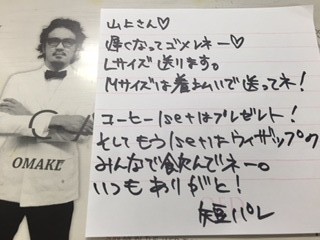 山上さん♡
遅くなってゴメンネー♡
Lサイズ送ります。
Mサイズは着払いで送ってネ!
コーヒー1setはプレゼント!
そしてもう1setはウィザップの
みんなで飲んでネー。
いつもありがと!
OMAKE